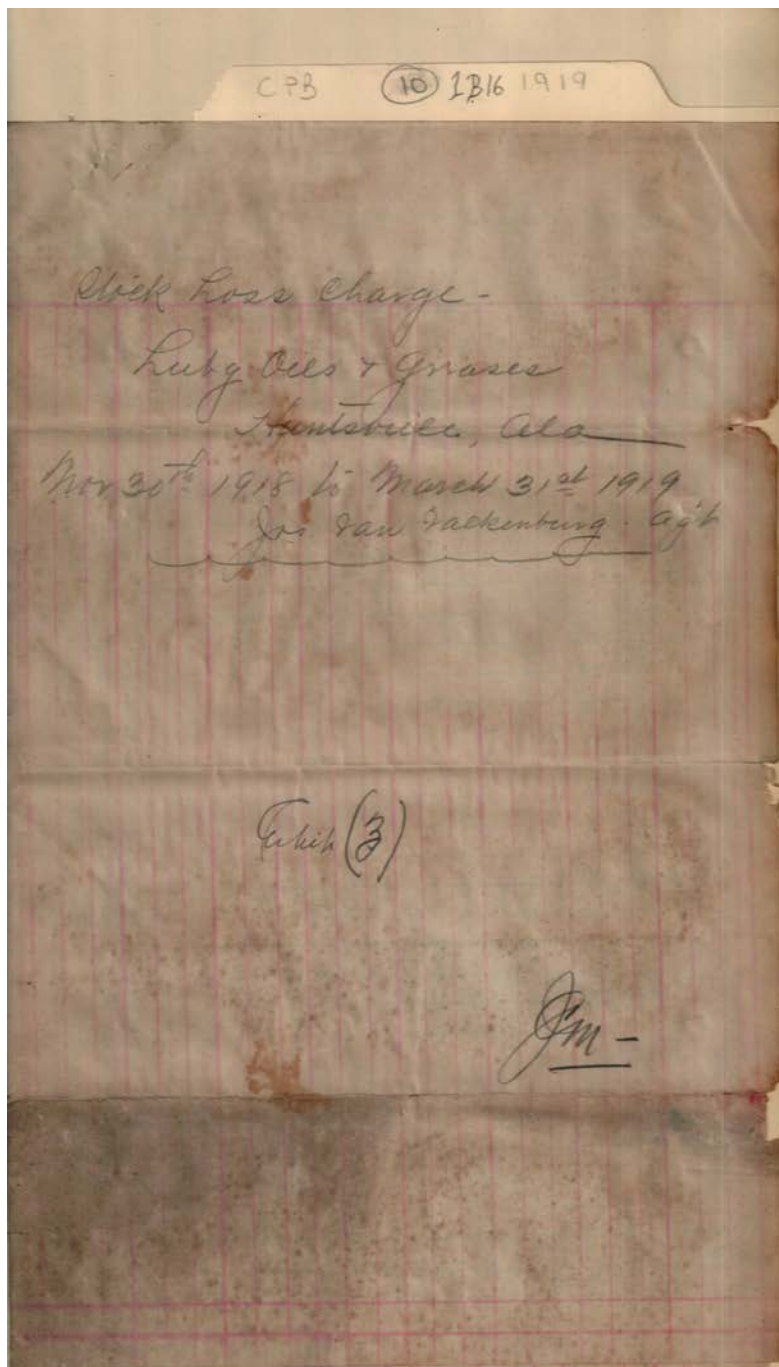 CPB 10 1B16 1919
Stock Loss Charge -
Lubg Oils & Greases
Huntsville, Ala
Nov 30th 1918 to March 31st 1919
Jos Van Valkenburg. Agt
(3)